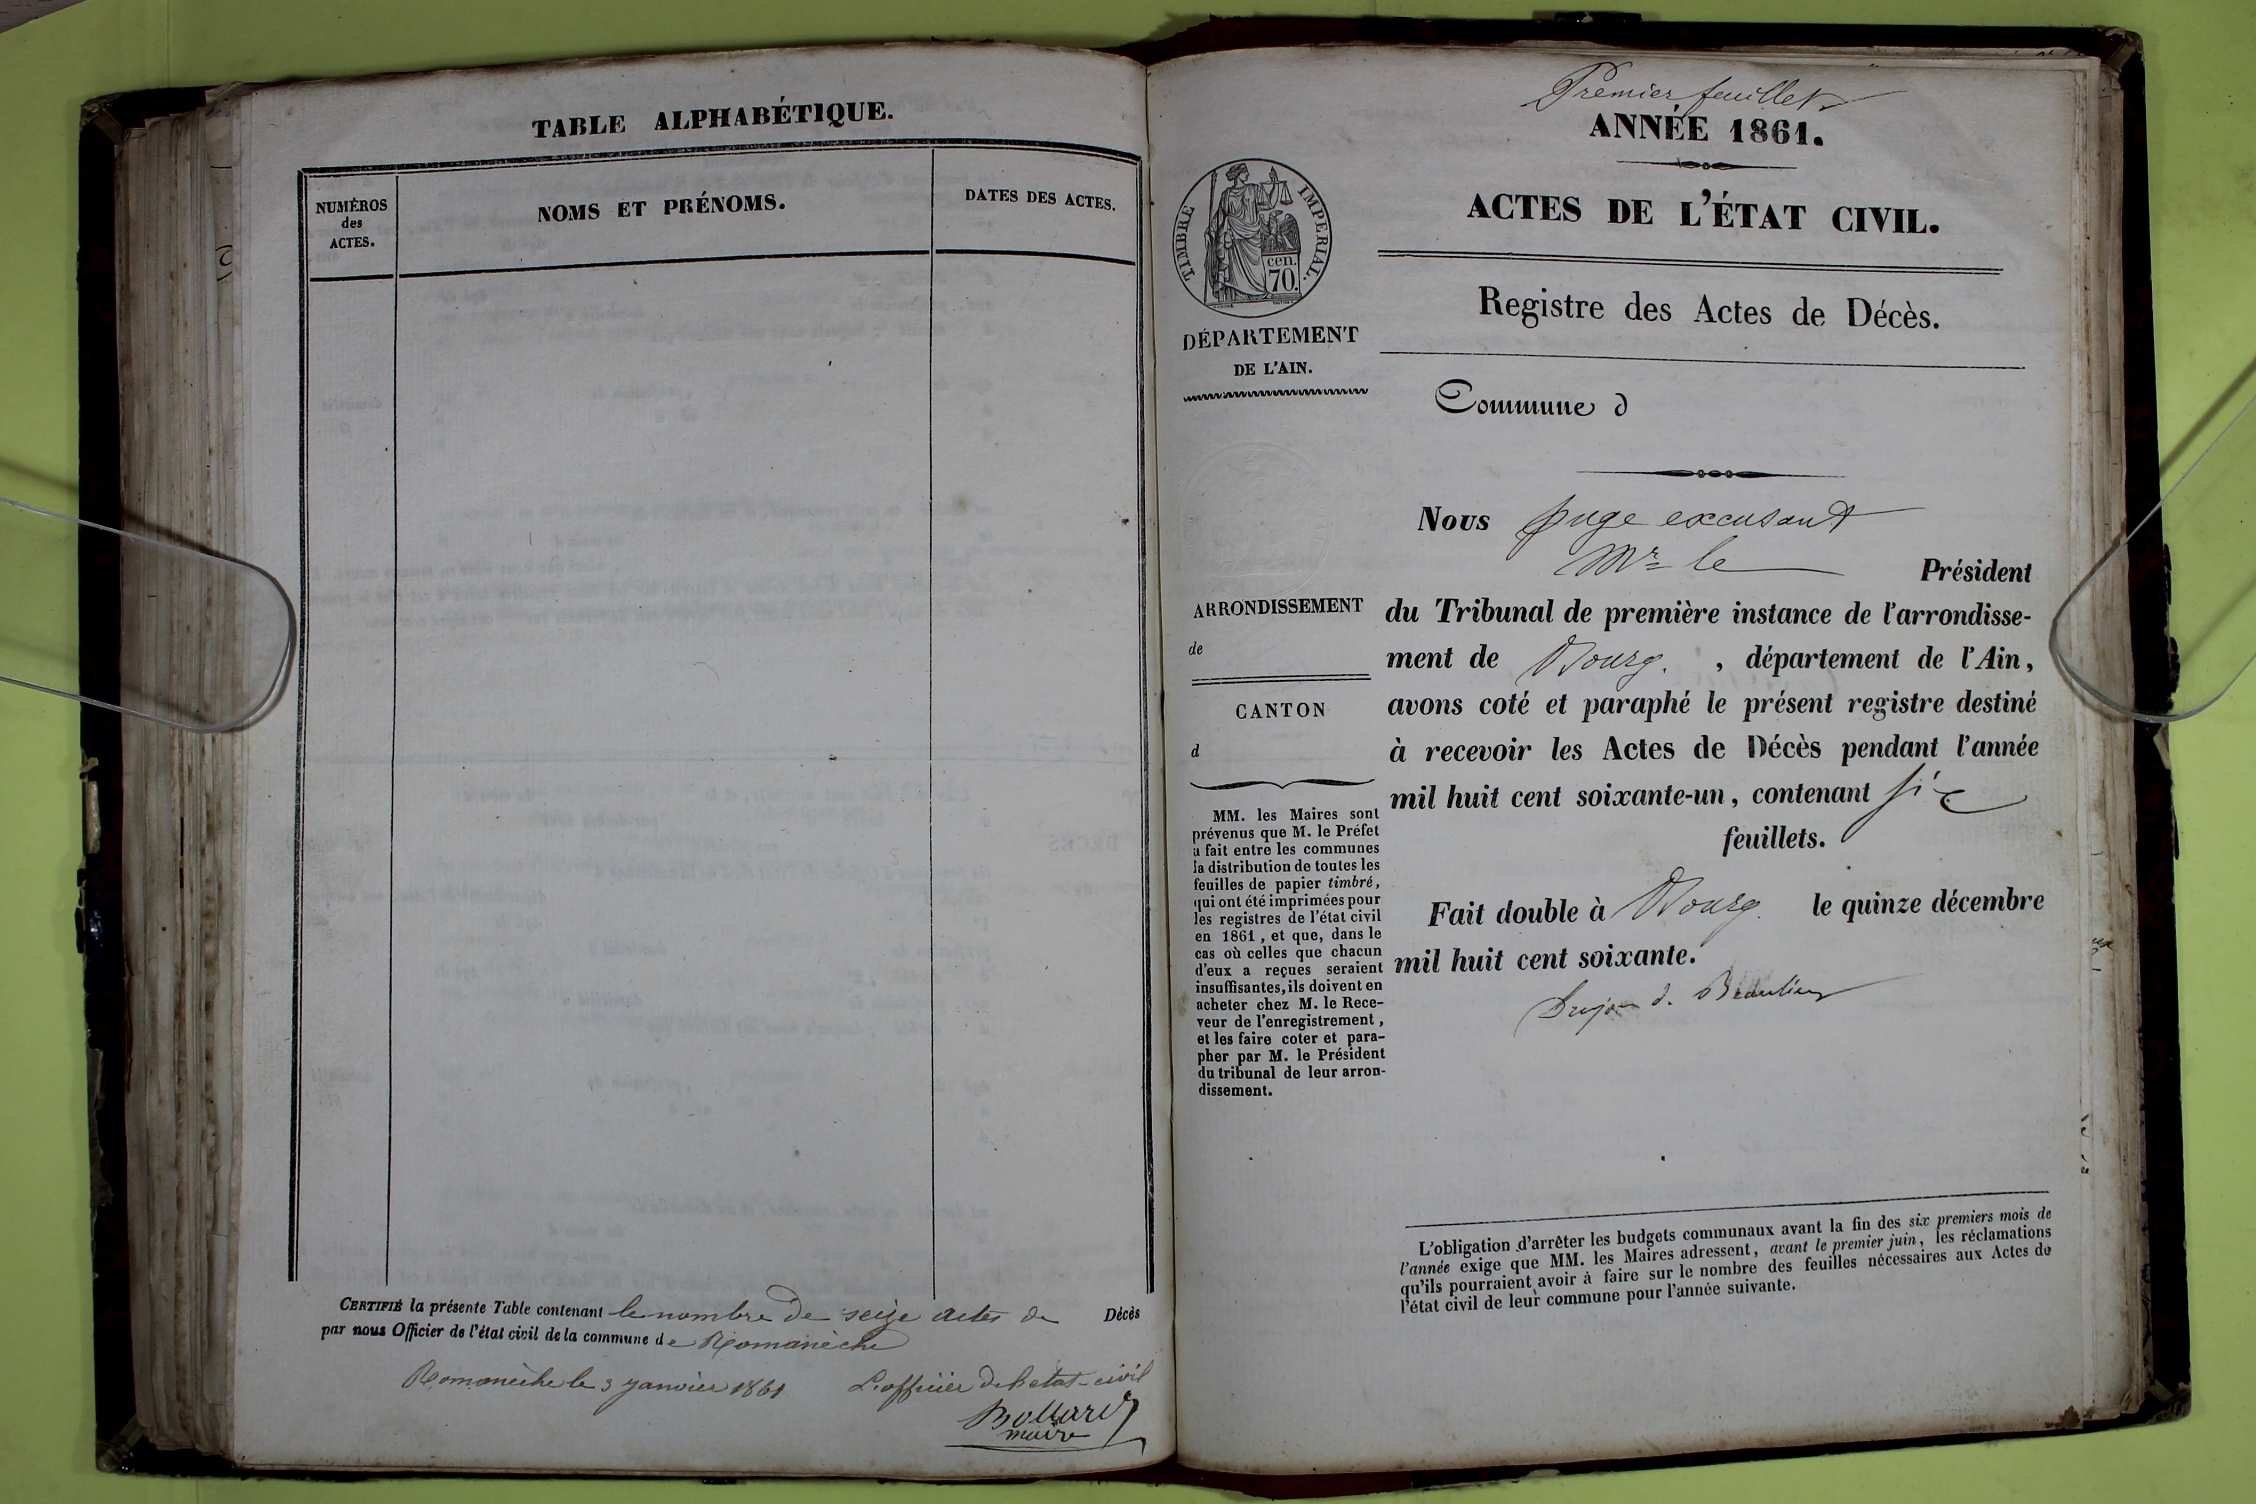 TABLE ALPHABÉTIQUE.
NUMÉROS
des
ACTES.
NOMS ET PRÉNOMS.
DATES DES ACTES.
CERTIFIÉ la présente Table contenant le nombre de seize actes de Décès
par nous Officier de l'état civil de la commune de Romanèche
Romanèche le 3 janvier 1861 L'officier de l'etat-civil
maire
Premier feuillet
ANNÉE 1861.
ACTES DE L'ÉTAT CIVIL.
TIMBRE IMPERIAL.
cen.
70.
DÉPARTEMENT
DE L'AIN.
ARRONDISSEMENT
de
CANTON
d
MM. les Maires sont
prévenus que M. le Préfet
a fait entre les communes
la distribution de toutes les
feuilles de papier timbré,
qui ont été imprimées pour
les registres de l'état civil
en 1861, et que, dans le
cas où celles que chacun
d'eux a reçues seraient
insuffisantes, ils doivent en
acheter chez M. le Rece-
veur de l'enregistrement,
et les faire coter et para-
pher par M. le Président
du tribunal de leur arron-
dissement.
Registre des Actes de Décès.
Commune d
Nous juge excusant
Mr le Président
du Tribunal de première instance de l'arrondisse-
ment de Bourg. , département de l'Ain,
avons coté et paraphé le présent registre destiné
à recevoir les Actes de Décès pendant l'année
mil huit cent soixante-un, contenant six
feuillets.
Fait double à Bourg. le quinze décembre
mil huit cent soixante.
d. Beaulieu
L'obligation d'arrêter les budgets communaux avant la fin des six premiers mois de
l'année exige que MM. les Maires adressent, avant le premier juin, les réclamations
qu'ils pourraient avoir à faire sur le nombre des feuilles nécessaires aux Actes de
l'état civil de leur commune pour l'année suivante.